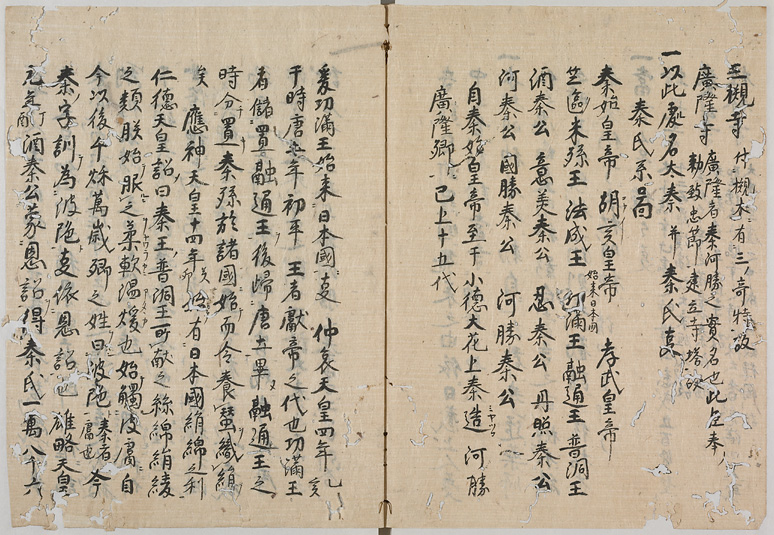 三槻寺 付槻木有三奇特故
廣隆寺 廣隆者秦河勝之實名也此臣奉
勅致忠節建立寺塔故
一以此處名太秦并秦氏㕝
秦氏系圖
秦始皇帝 胡亥皇帝 孝武皇帝
竺達米孫王 法成王 功滿王 始来日本国 融通王 普洞王
酒秦公 意美秦公 忍秦公 丹照秦公
河秦公 國勝秦公 河勝秦公
自秦始皇帝至于小德大花上秦造河勝
廣隆卿 已上十五代
爰功滿王始来日本國支 仲哀天皇四年乙亥
于時唐 年初平王者獻帝之代也功滿王
者儲置融通王後歸唐土畢融通王之
時分置秦孫於諸國始而令養蠶織絹
矣 應神天皇十四年癸卯 有日本國絹綿之利
仁德天皇詔曰秦王普洞王所献之絲綿絹綾
之類朕始服之柔軟温煖也始觸皮膚自
今以後千秋萬歲卿之姓曰波陁 秦者膚也 今
秦字訓為波陁支依恩詔也 雄略天皇
元年丁酉酒秦公蒙恩詔得秦氏一萬八千六